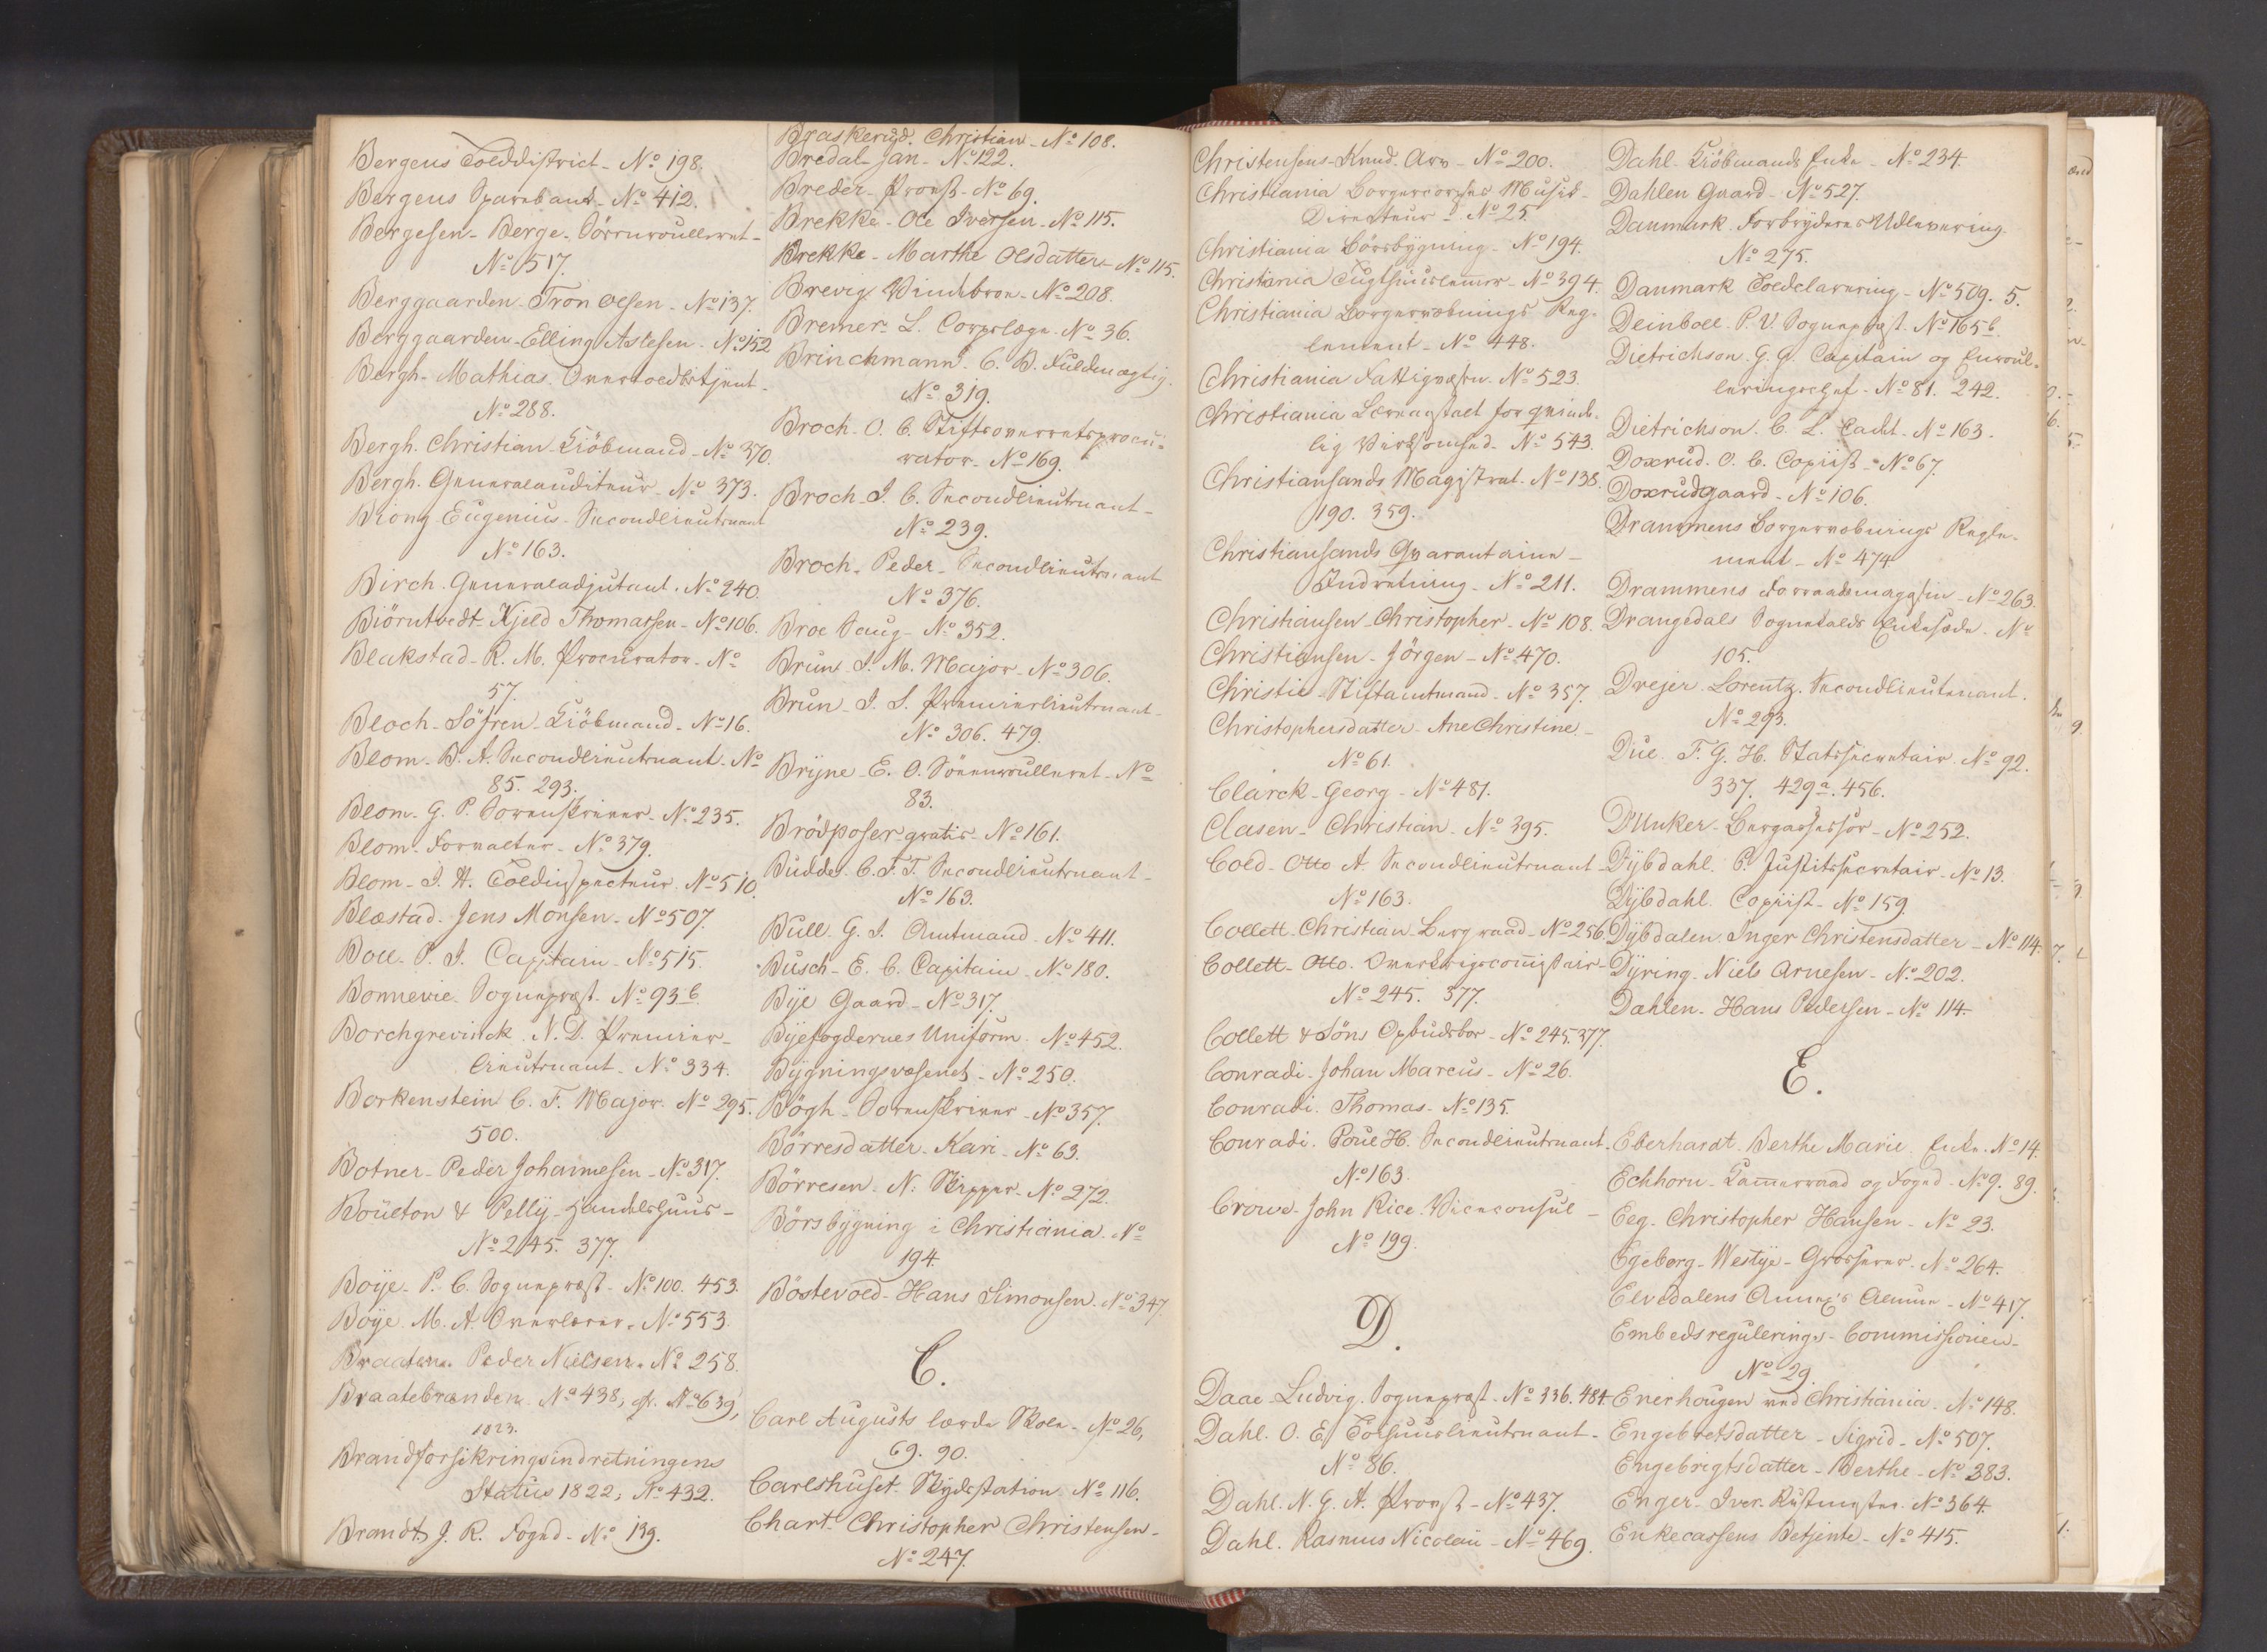 Bergens Tolddistrict - No 198.
Bergens Sparebank - No 412.
Bergesen - Berge - Sörrulleret -
No 517.
Berggaarden - Tron Olsen - No 137.
Berggaarden - Elling Aslesen - No 152
Bergh - Mathias. Overtoldbetjent -
No 288.
Bergh. Christian Kiöbmand - No 370.
Bergh. Generalauditeur - No 373.
Biong Eugenius - Secondlieutenant
No 163.
Birch. Generaladjutant. No 240.
Biörntvedt Kjeld Thomassen - No 106.
Blakstad - R. M. Procurator - No
57.
Bloch - Söfren - Kiöbmand - No 16.
Blom - B. A. Secondlieutenant. No
85. 293.
Blom - G. P. Sorenskriver - No 235.
Blom - Forvalter - No 379.
Blom - I. H. Toldinspecteur. No 510.
Blæstad. Jens Monsen - No 507.
Boll - P. I. Capitain - No 515.
Bonnevie. Sognepræst - No 93 b.
Borchgrevinck. N. D. Premier-
lieutenant - No 334.
Borkenstein C. F. Major. No 295.
500.
Botner - Peder Johannesen - No 317.
Boülton & Pelly - Handelshuus -
No 245. 377.
Boije - P. C. Sognepræst - No 100. 453.
Boije. M. A. Overlærer - No 553.
Braaten. Peder Nielsen. No 258.
Braatebrænden. No 438, cfr. No 639,
1823.
Brandforsikringsindretningens
Status 1822, No 432.
Brandt J. R. Foged - No 139.
Braskerud. Christian - No 108.
Bredal - Jan - No 122.
Breder - Provst - No 69.
Brekke - Ole Iversen - No 115.
Brekke - Marthe Olsdatter - No 115.
Brevig Vindebroe - No 208.
Bremer. L. Corpslæge - No 36.
Brinchmann. C. B. Fuldmægtig.
No 319.
Broch - O. C. Stiftsoverretsprocu-
rator - No 169.
Broch - I. C. Secondlieutenant -
No 239.
Broch - Peder - Secondlieutenant
No 376.
Broe Saug - No 352.
Brun - I. M. Major - No 306.
Brun - I. L. Premierlieutenant -
No 306. 479.
Bryne - E. O. Söenrulleret - No
83.
Brödposer gratis - No 161.
Budde. C. F. T. Secondlieutenant -
No 163.
Bull - G. I. Amtmand - No 411.
Busch - E. C. Capitain - No 180.
Bye Gaard - No 317.
Byefogdernes Uniform. No 452.
Bygningsvæsenet - No 250.
Bögh - Sorenskriver - No 357.
Börresdatter - Kari - No 63.
Börresen - N. Skipper - No 272.
Börsbygning i Christiania. No
194.
Böstevold - Hans Simonsen - No 347.
C.
Carl Augusts lærde Skole - No 26,
69. 90.
Carlshuset - Skydsstation. No 116.
Chart - Christopher Christensen -
No 247.
Christensens - Knud. Arv - No 200.
Christiania Borgercorpses Musik-
Directeur - No 25.
Christiania Börsbygning - No 194.
Christiania Tugthuuslemmer - No 394.
Christiania Borgervæbnings Reg-
lement - No 448.
Christiania Fattigvæsen. No 523.
Christiania Læreanstalt for qvinde-
lig Virksomhed - No 543.
Christiansands Magistrat. No 138.
190. 359.
Christiansands Qvarantaine -
Indretning - No 211.
Christiansen - Christopher - No 108.
Christiansen - Jörgen - No 470.
Christie - Stiftamtmand - No 357.
Christophersdatter - Ane Christine -
No 61.
Clarck - Georg - No 481.
Clasen - Christian - No 395.
Cold - Otto A. Secondlieutenant -
No 163.
Collett - Christian - Bergraad - No 256
Collett - Otto. Overkrigscommissair -
No 245. 377.
Collett & Söns Opbudsboe - No 245. 377.
Conradi - Johan Marcus - No 26.
Conradi. Thomas - No 135.
Conradi. Poul H. Secondlieutenant.
No 163.
Crowe - John Rice. Viceconsul -
No 199.
D.
Daae - Ludvig. Sognepræst - No 336. 484
Dahl. O. E. Tolhuuslieutenant -
No 86.
Dahl. N. G. A. Provst - No 437.
Dahl. Rasmus Nicolai - No 469.
Dahl - Kiöbmands Enke - No 234.
Dahlen Gaard - No 527.
Danmark. Forbryderes Udlevering.
No 275.
Danmark Toldclarering - No 509. 5.
Deinboll. P. V. Sognepræst. No 165 b.
Dietrichson. G. G. Capitain og Enroul-
leringschef - No 81. 242.
Dietrichson. C. L. Cadet - No 163.
Doxrud. O. C. Copiist - No 67.
Doxrudgaard - No 106.
Drammens Borgervæbnings Regle-
ment - No 474
Drammens Forraadsmagasin - No 263.
Drangedals Sognekalds Enkesæde - No
105.
Drejer - Lorentz. Secondlieutenant.
No 293.
Due. F. G. H. Statssecretair. No 92.
337. 429 a. 456.
D'Unker - Bergassessor - No 252.
Dybdahl. P. Justitssecretair - No 13.
Dybdahl. Copiist - No 159.
Dybdalen. Inger Christensdatter - No 114.
Dyring - Niels Arnesen - No 202.
Dahlen - Hans Pedersen - No 114.
E.
Eberhardt. Berthe Marie. Enke. No 14.
Echhorn - Kammerraad og Foged - No 9. 89.
Eeg - Christopher Hansen - No 23.
Egeberg - Westye - Grosserer. No 264.
Elvedalens Annex's Almue - No 417.
Embedsregulerings - Commissionen -
No 29.
Enerhougen ved Christiania - No 148.
Engebretsdatter - Sigrid - No 507.
Engebrigtsdatter - Berthe - No 383.
Enger - Iver. Rustmester. No 364.
Enkecassens Betjente - No 415.